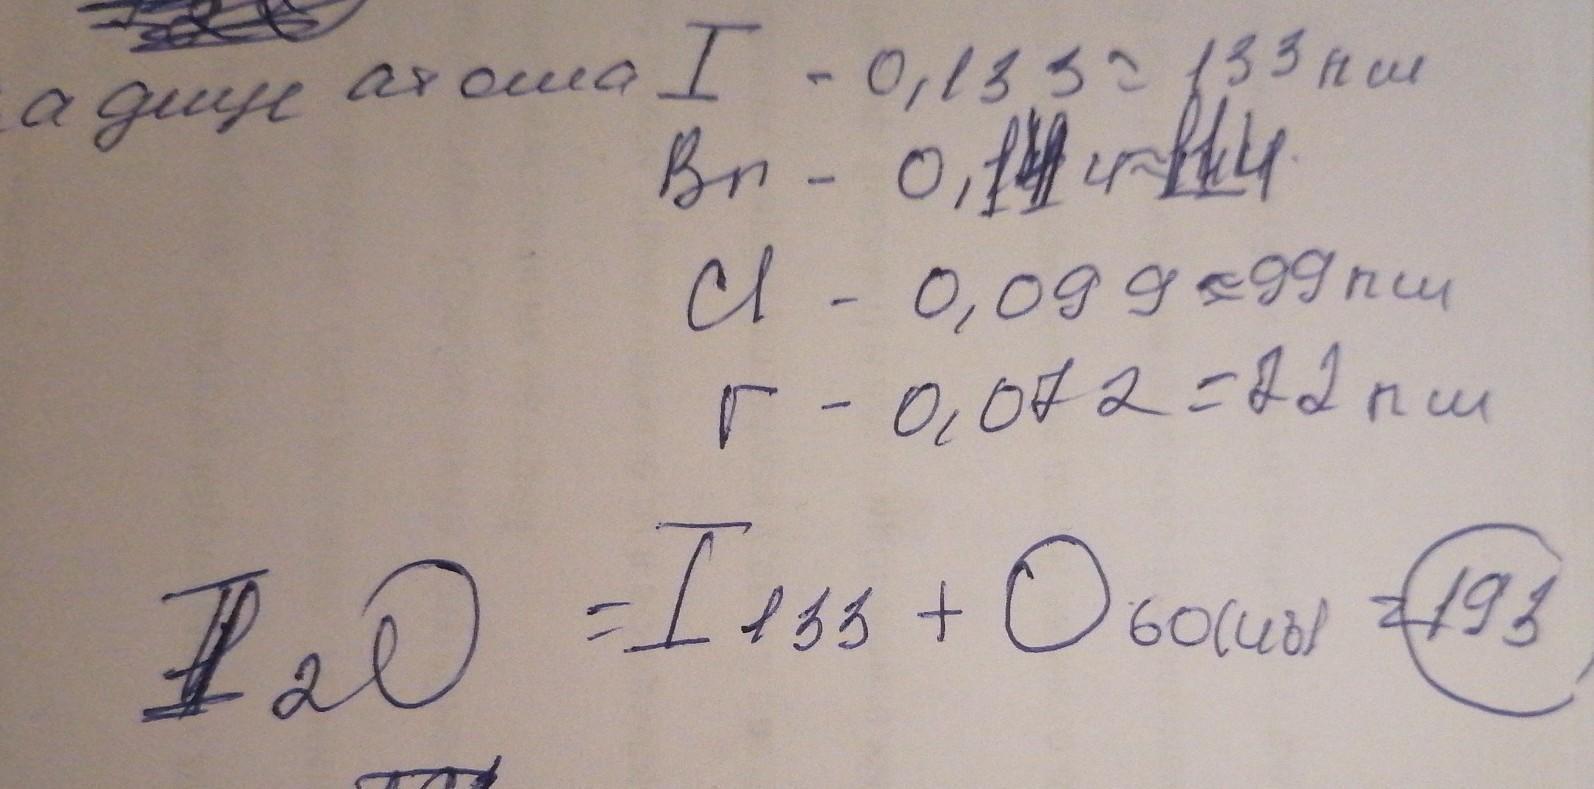 адиус атома I - 0,133 = 133 пм
Br - 0,114 = 114
Cl - 0,099 = 99 пм
F - 0,072 = 72 пм
I₂O = I 133 + O 60(48) = 193